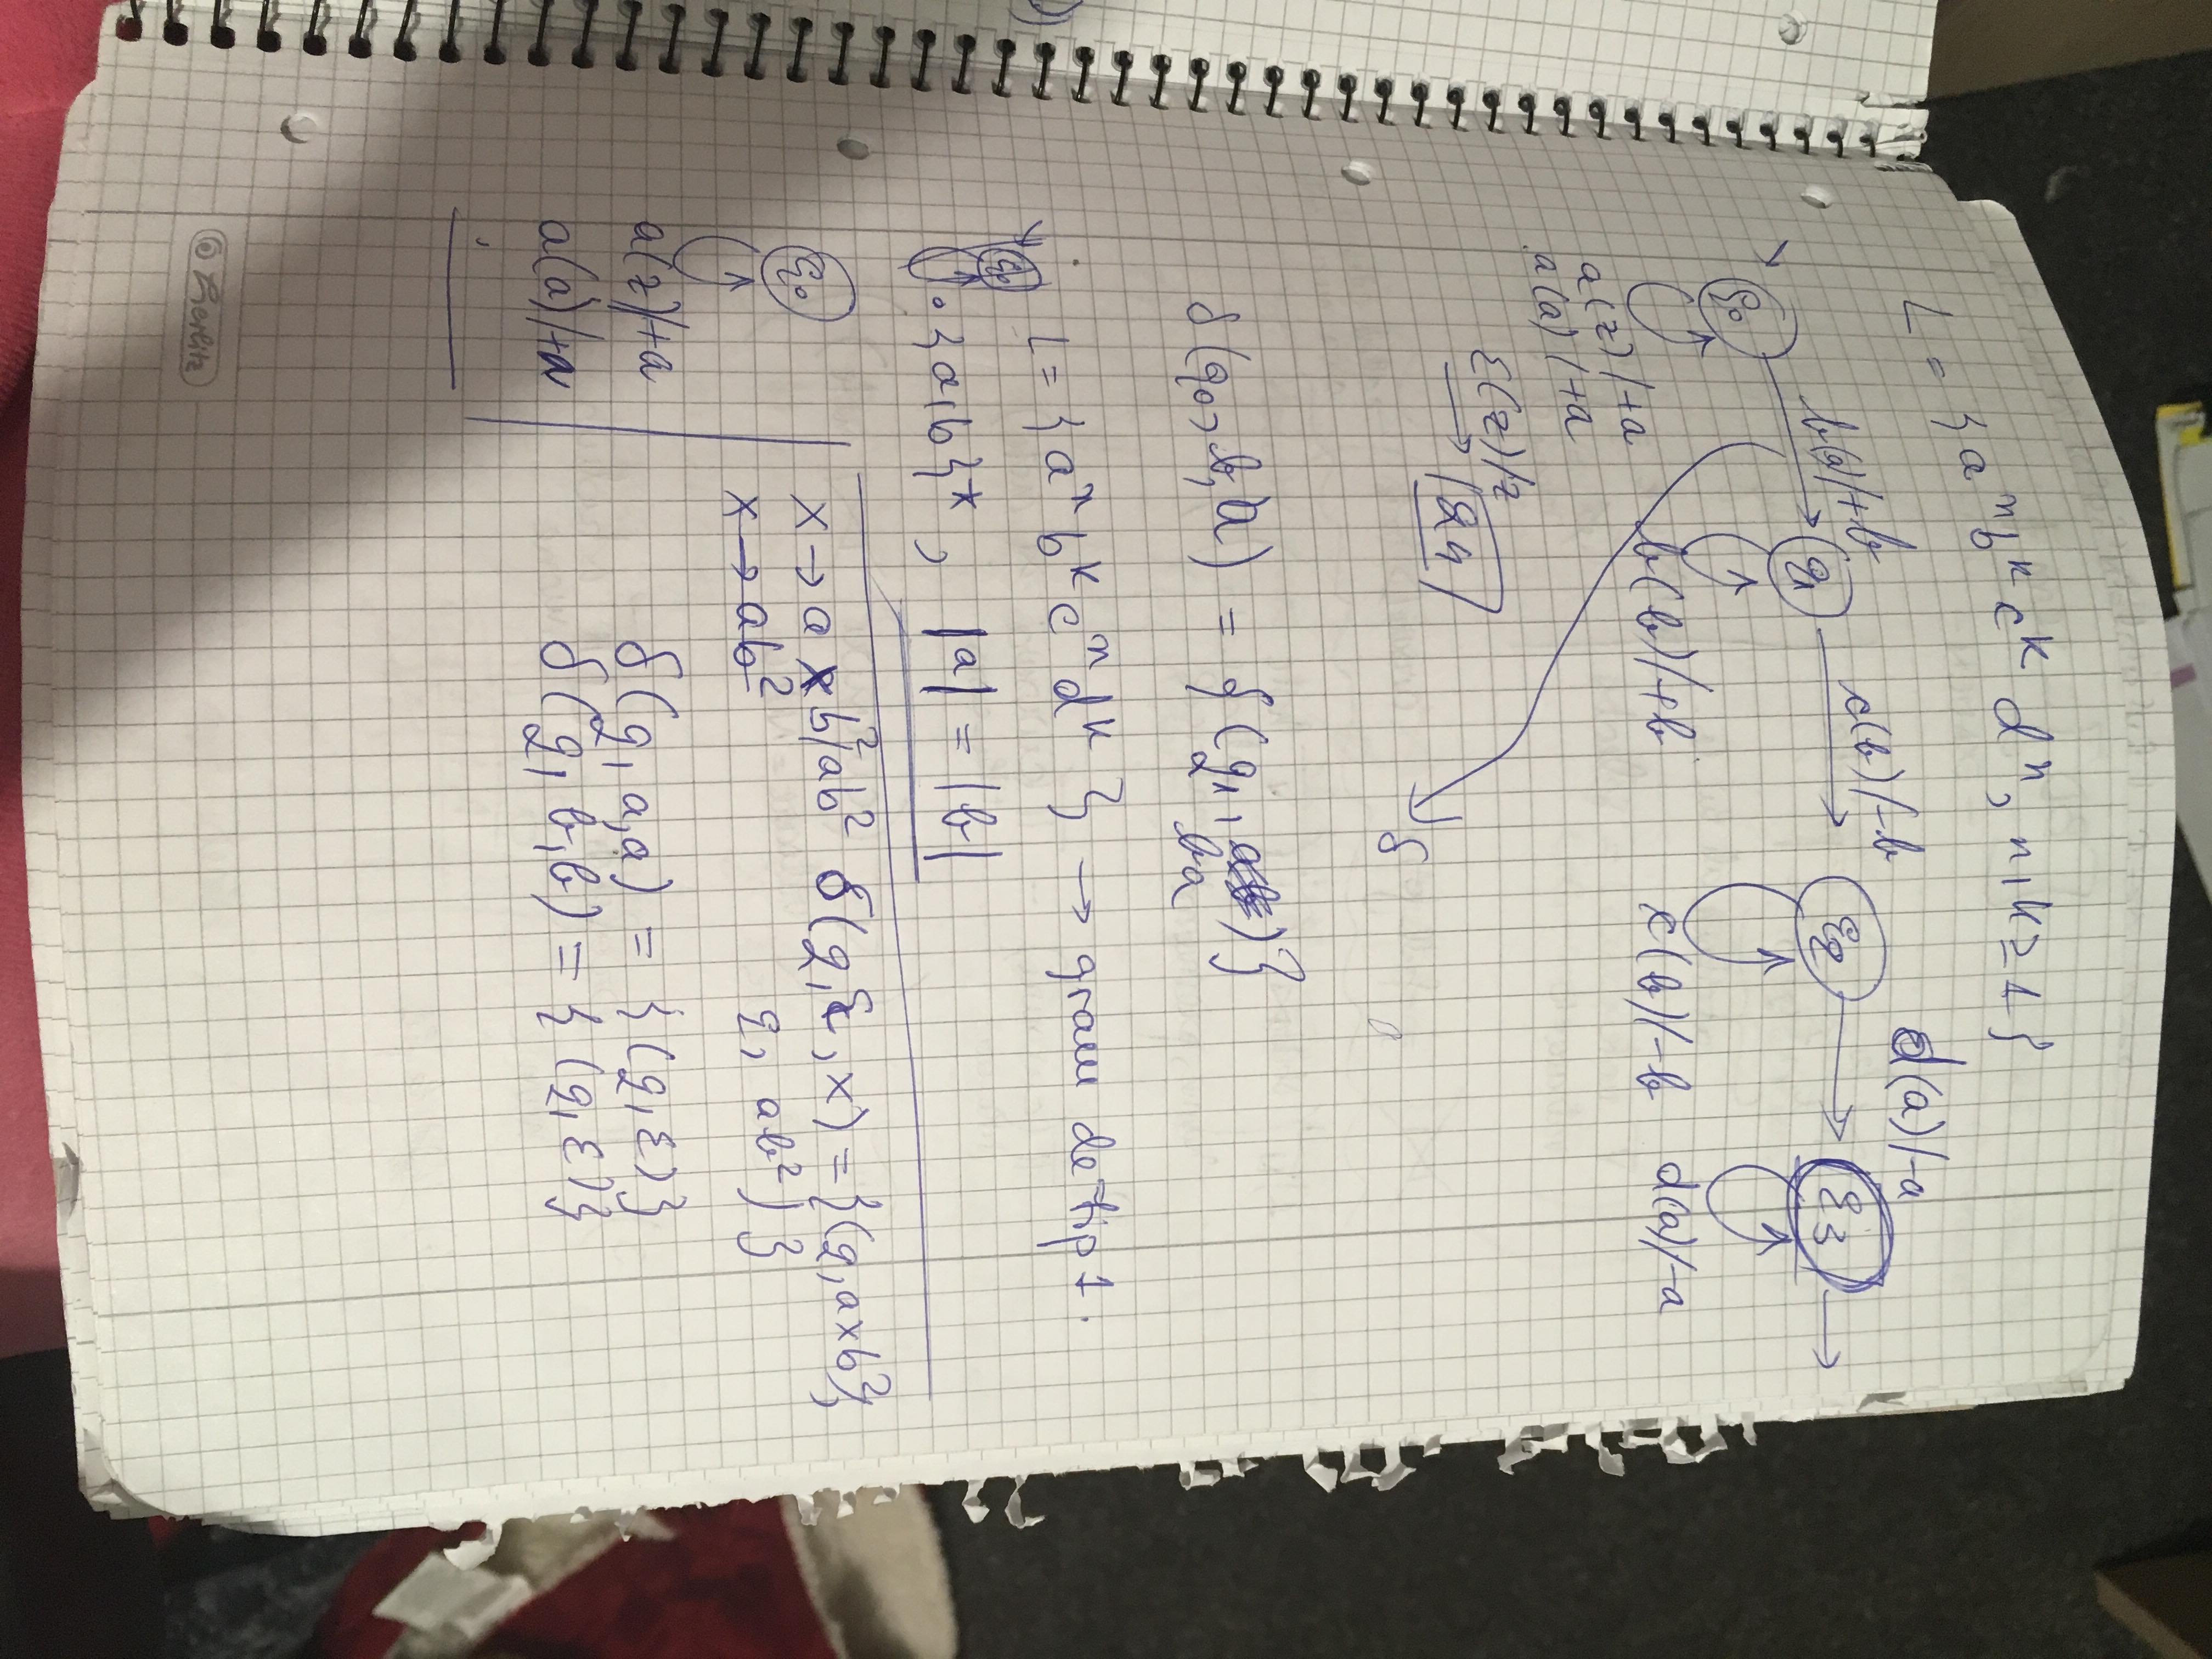 L = { aⁿ bᵏ cᵏ dⁿ, n, k ≥ 1 }
b(a)/+b
c(b)/-b
d(a)/-a
q₀
q₁
q₂
q₃
a(z)/+a
a(a)/+a
b(b)/+b
c(b)/-b
d(a)/-a
ε(z)/z
q4
δ
δ(q₀, b, a) = {(q₁, ba)}
L = { aⁿ bᵏ cⁿ dᵏ } → gram de tip 1.
q₀
• {a,b}*, |a| = |b|
q₀
a(z)/+a
a(a)/+a
x → a x b²/ab² δ(q, ε, x) = {(q, axb²),
x → ab² q, ab²)}
δ(q, a, a) = {(q, ε)}
δ(q, b, b) = {(q, ε)}
© herlitz